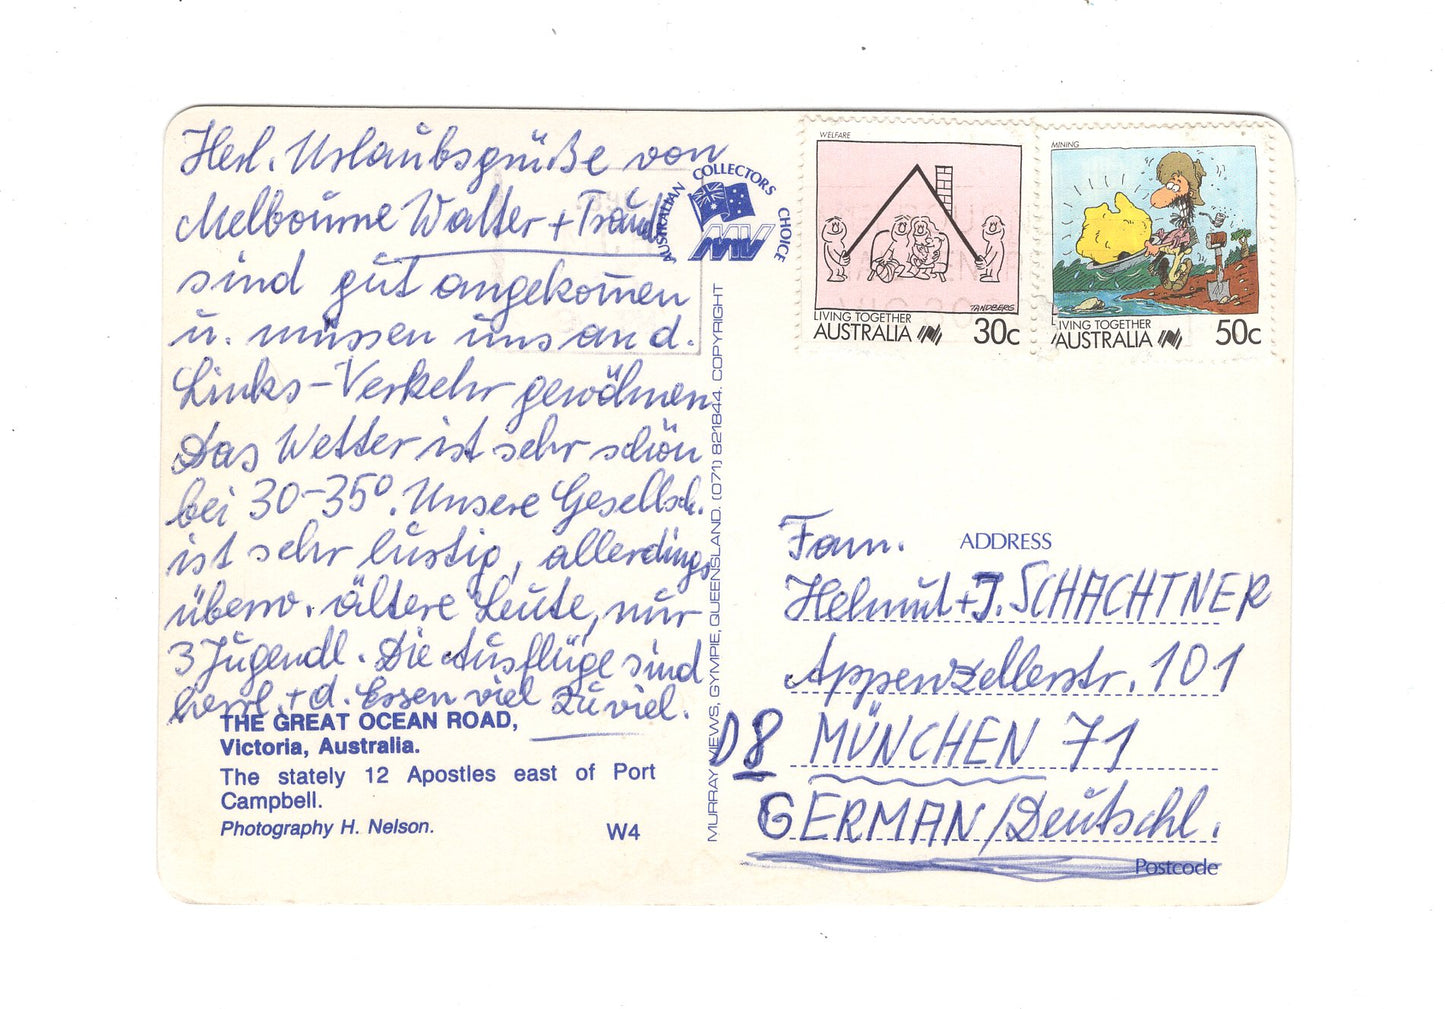 Herl. Urlaubsgrüße von
Melbourne Walter + Traudl
sind gut angekom̅en
u. müssen uns an d.
Links-Verkehr gewöhnen
Das Wetter ist sehr schön
bei 30-35°. Unsere Gesellsch.
ist sehr lustig, allerdings
überw. ältere Leute, nur
3 Jugendl. Die Ausflüge sind
herrl. + d. Essen viel zu viel.
THE GREAT OCEAN ROAD,
Victoria, Australia.
The stately 12 Apostles east of Port
Campbell.
Photography H. Nelson.
W4
AUSTRALIAN COLLECTORS CHOICE
MV
MURRAY VIEWS, GYMPIE, QUEENSLAND. (071) 821844. COPYRIGHT
WELFARE
TANDBERG
LIVING TOGETHER
AUSTRALIA 30c
MINING
LIVING TOGETHER
AUSTRALIA 50c
ADDRESS
Fam.
Helmut + J. SCHACHTNER
Appenzellerstr. 101
D8 MÜNCHEN 71
GERMAN/Deutschl.
Postcode